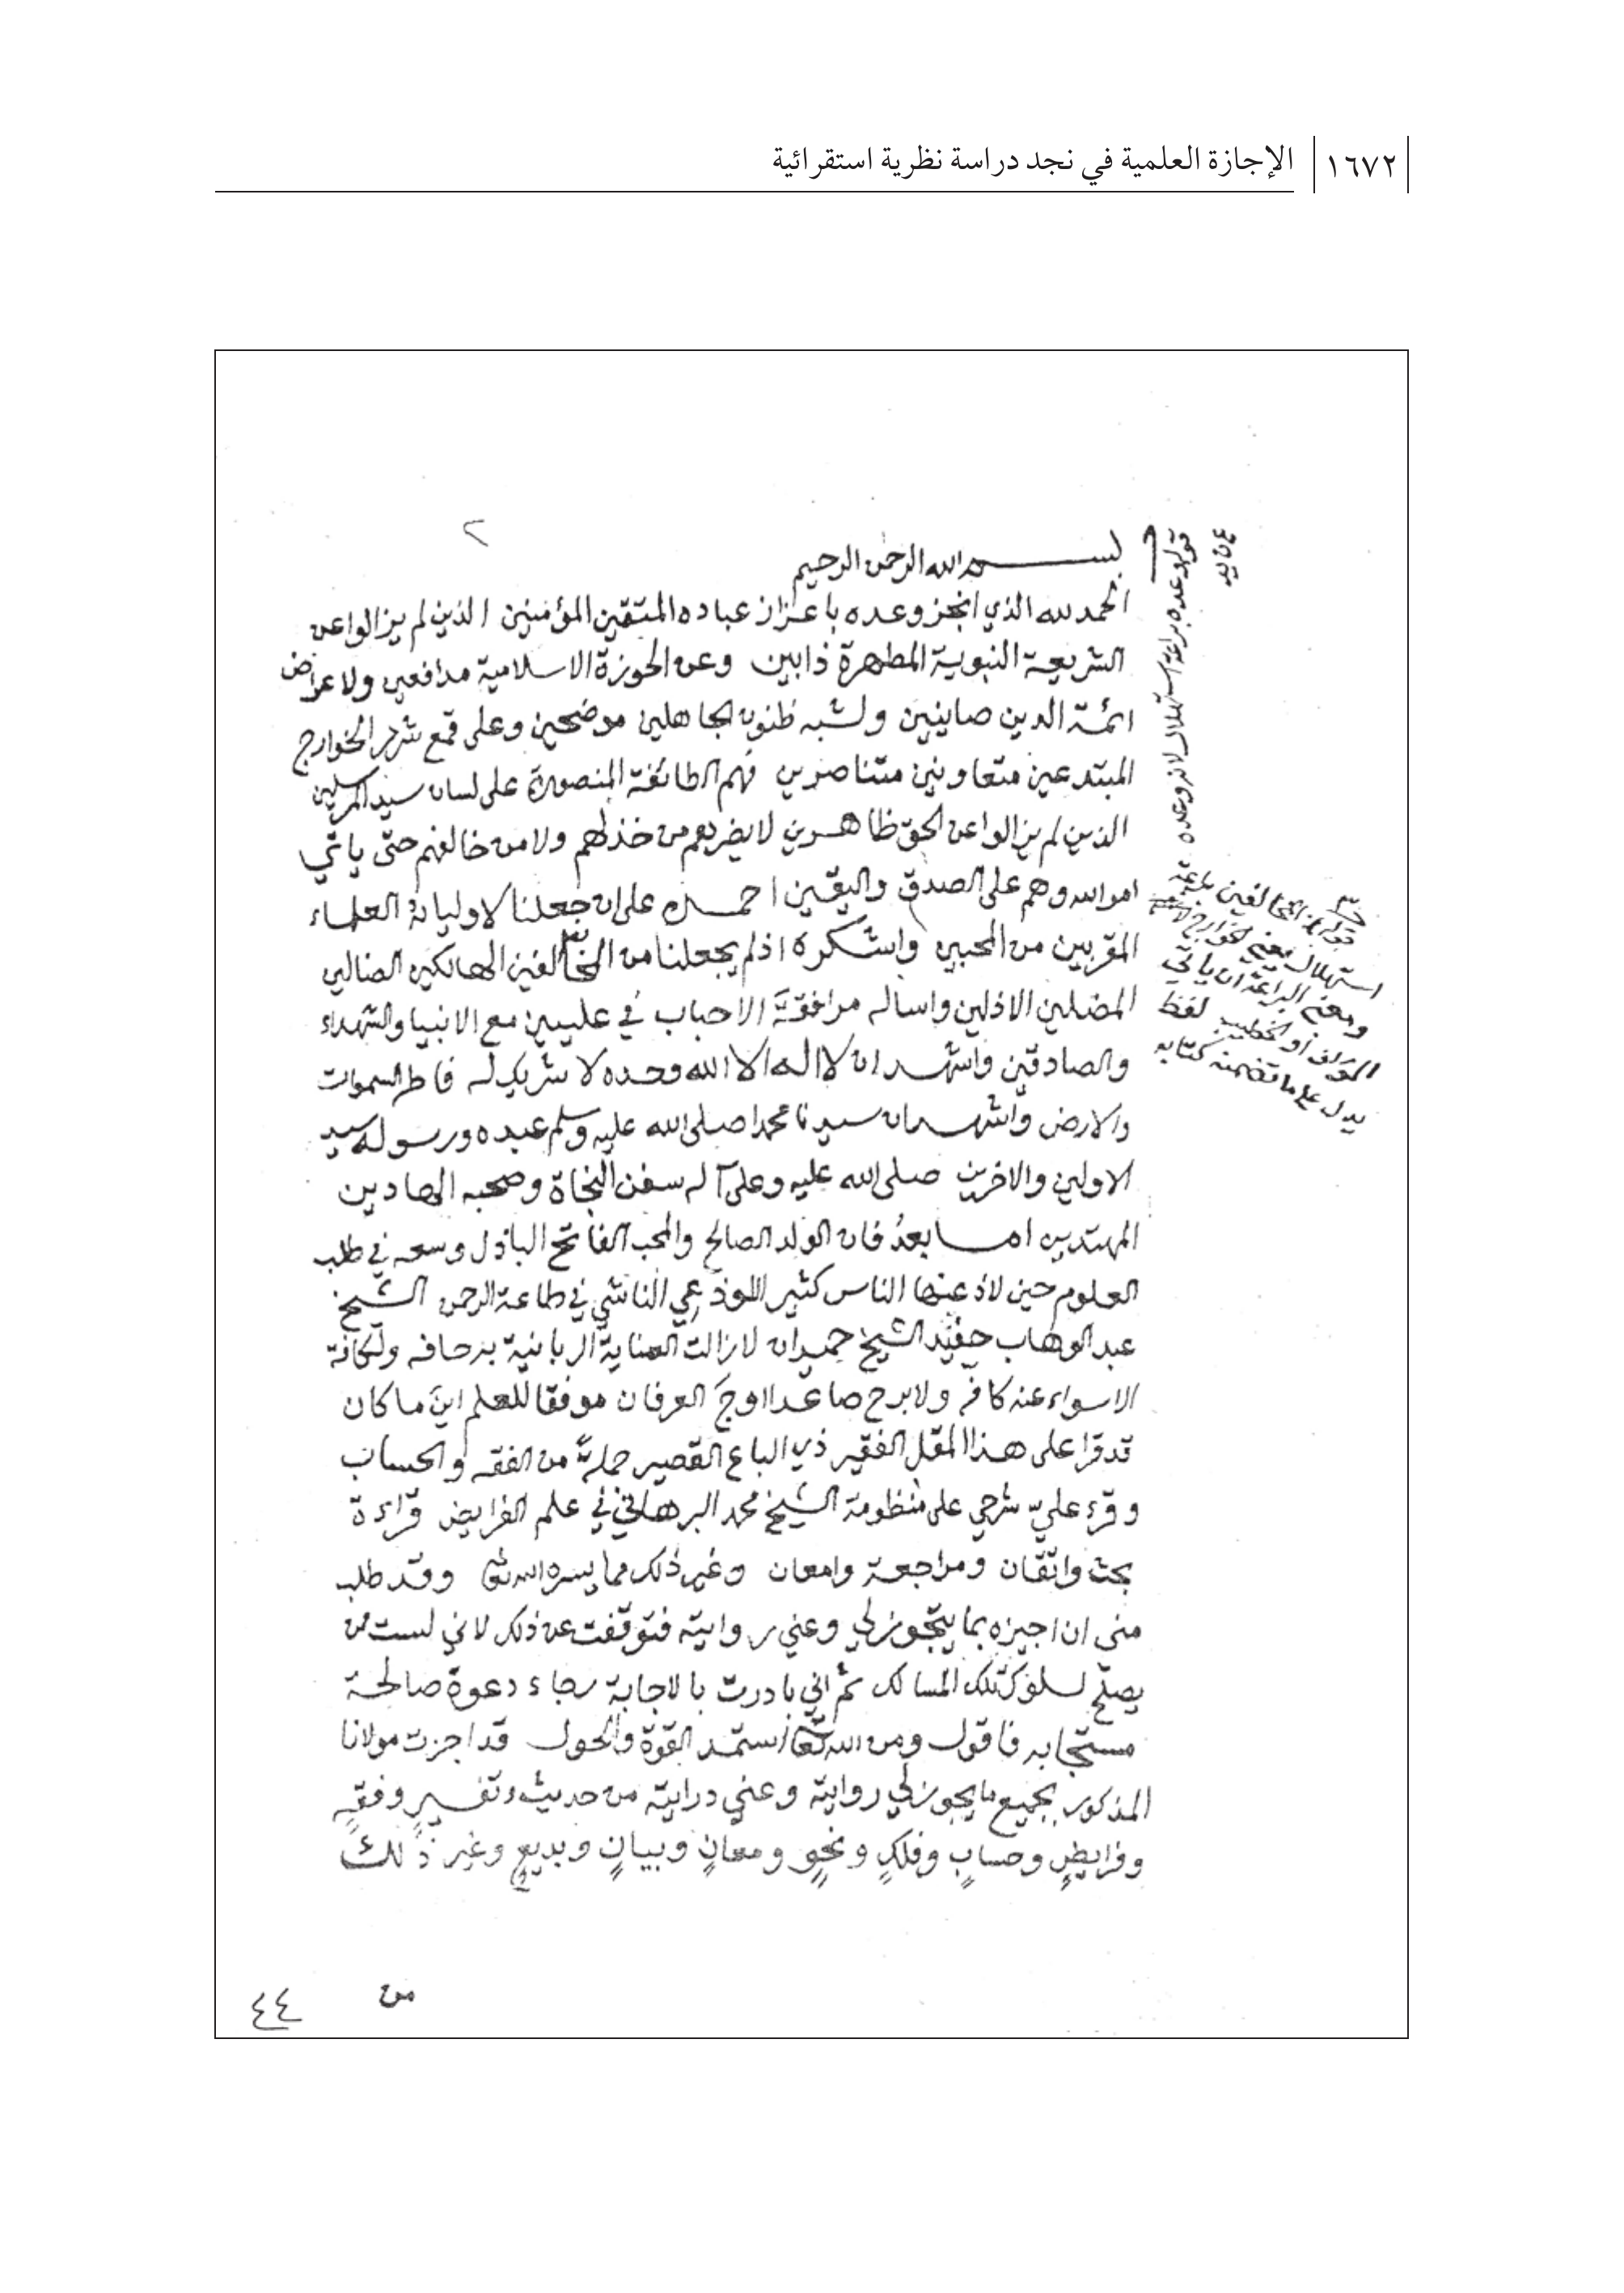 ١٦٧٢
الإجازة العلمية في نجد دراسة نظرية استقرائية
٢
بسم الله الرحمن الرحيم
الحمد لله الذي انجز وعده باعزاز عباده المتقين المؤمنين الذين لم يزالوا عن
الشريعة النبوية المطهرة ذابين وعن الحوزة الاسلامية مدافعين ولاعراض
ائمة الدين صاينين ولشبه ظنون الجاهلين موضحين وعلى قمع شرر الخوارج
المبتدعين متعاونين متناصرين فهم الطائفة المنصورة على لسان سيد المرسلين
الذين لم يزالوا عن الحق ظاهرين لا يضرهم من خذلهم ولا من خالفهم حتى ياتي
امر الله وهم على الصدق واليقين احمده على ان جعلنا لاوليائه العلماء
المقربين من المحبين واشكره اذ لم يجعلنا من المخالفين الهالكين الضالين
المضلين الاذلين واساله مرافقة الاحباب في عليين مع الانبيا والشهداء
والصادقين واشهد ان لا اله الا الله وحده لا شريك له فاطر السموات
والارض واشهد ان سيدنا محمدا صلى الله عليه وسلم عبده ورسوله سيد
الاولين والاخرين صلى الله عليه وعلى آله سفن النجاة وصحبه الهادين
المهتدين اما بعدُ فان الولد الصالح والمحب الفاتح الباذل وسعه في طلب
العلوم حين لاذ عنها الناس كثير اللوذعي الناشي في طاعة الرحمن الشيخ
عبد الوهاب حفيد الشيخ حميدان لا زالت العناية الربانية به حافه ولكافة
الاسواء عنه كافه ولا برح صاعدا اوجَ العرفان موفقا للعلم اينَ ما كان
قد قرا على هذا المقل الفقير ذي الباع القصير جملةً من الفقه والحساب
وقرء عليّ شرحي على منظومة الشيخ محمد البرهاني في علم الفرايض قراءة
بحث واتقان ومراجعة وامعان وغير ذلك مما يسره الله تعالى وقد طلب
مني ان اجيزه بما يتجوز لي وعني روايته فتوقفت عن ذلك لاني لست ممن
يصلح لسلوك تلك المسالك ثم اني بادرت بالاجابة رجاء دعوة صالحة
مستجابه فاقول ومن الله تعالى استمد القوة والحول قد اجزت مولانا
المذكور بجميع ما يجوز لي روايته وعني درايته من حديث وتفسيرٍ وفقهٍ
وفرايضٍ وحسابٍ وفلكٍ ونحوٍ ومعانٍ وبيانٍ وبديعٍ وغير ذلك
من
٤٤
قوله وعده براعة استهلال
استهلال
ومعنى البراعة ان ياتي
المؤلف أو الخطيب لفظ
يدل على ما تضمنه كتابه